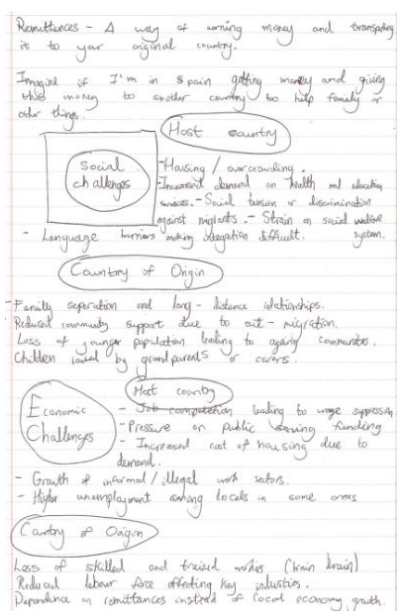 Remittances - A way of earning money and transfering
it to your original country.
Imagine if I'm in Spain getting money and giving
this money to another country to help family or
other things.
Host country
Social challenges
- Housing / overcrowding.
- Increased demand on health and education
services. - Social tension or discrimination
against migrants. - Strain on social welfare
system.
- Language barriers making integration difficult.
Country of Origin
- Family separation and long-distance relationships.
Reduced community support due to out-migration.
Loss of younger population leading to ageing communities.
Children raised by grandparents or carers.
Host country
Economic Challenges
- Job competition leading to wage suppression
- Pressure on public funding
- Increased cost of housing due to
demand.
- Growth of informal/illegal work sectors.
- Higher unemployment among locals in some areas
Country of Origin
Loss of skilled and trained workers (brain drain)
Reduced labour force affecting key industries.
Dependence on remittances instead of local economy growth.